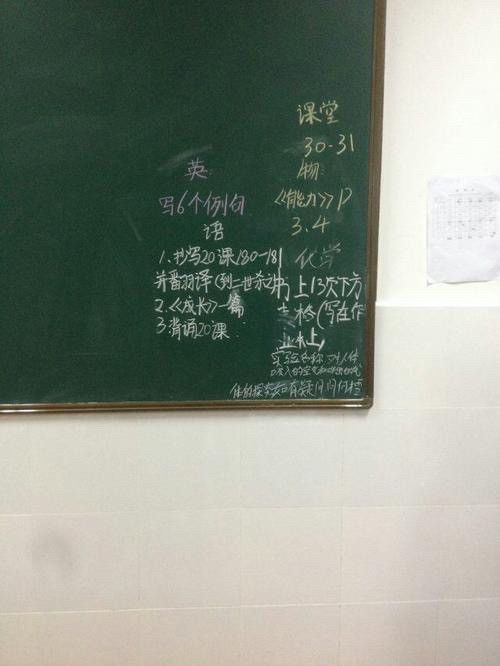 课堂
30-31
物
《能力》P
3.4
英
写6个例句
语
1.抄写20课180-181
并番羽译(到二世杀之中
2.《成长》一篇
3.背诵20课
化学
书上13次下方
表格(写在作
业本上)
实验名称 对人体
吸入的空气和呼出的气
体的探究如有疑问问何楷